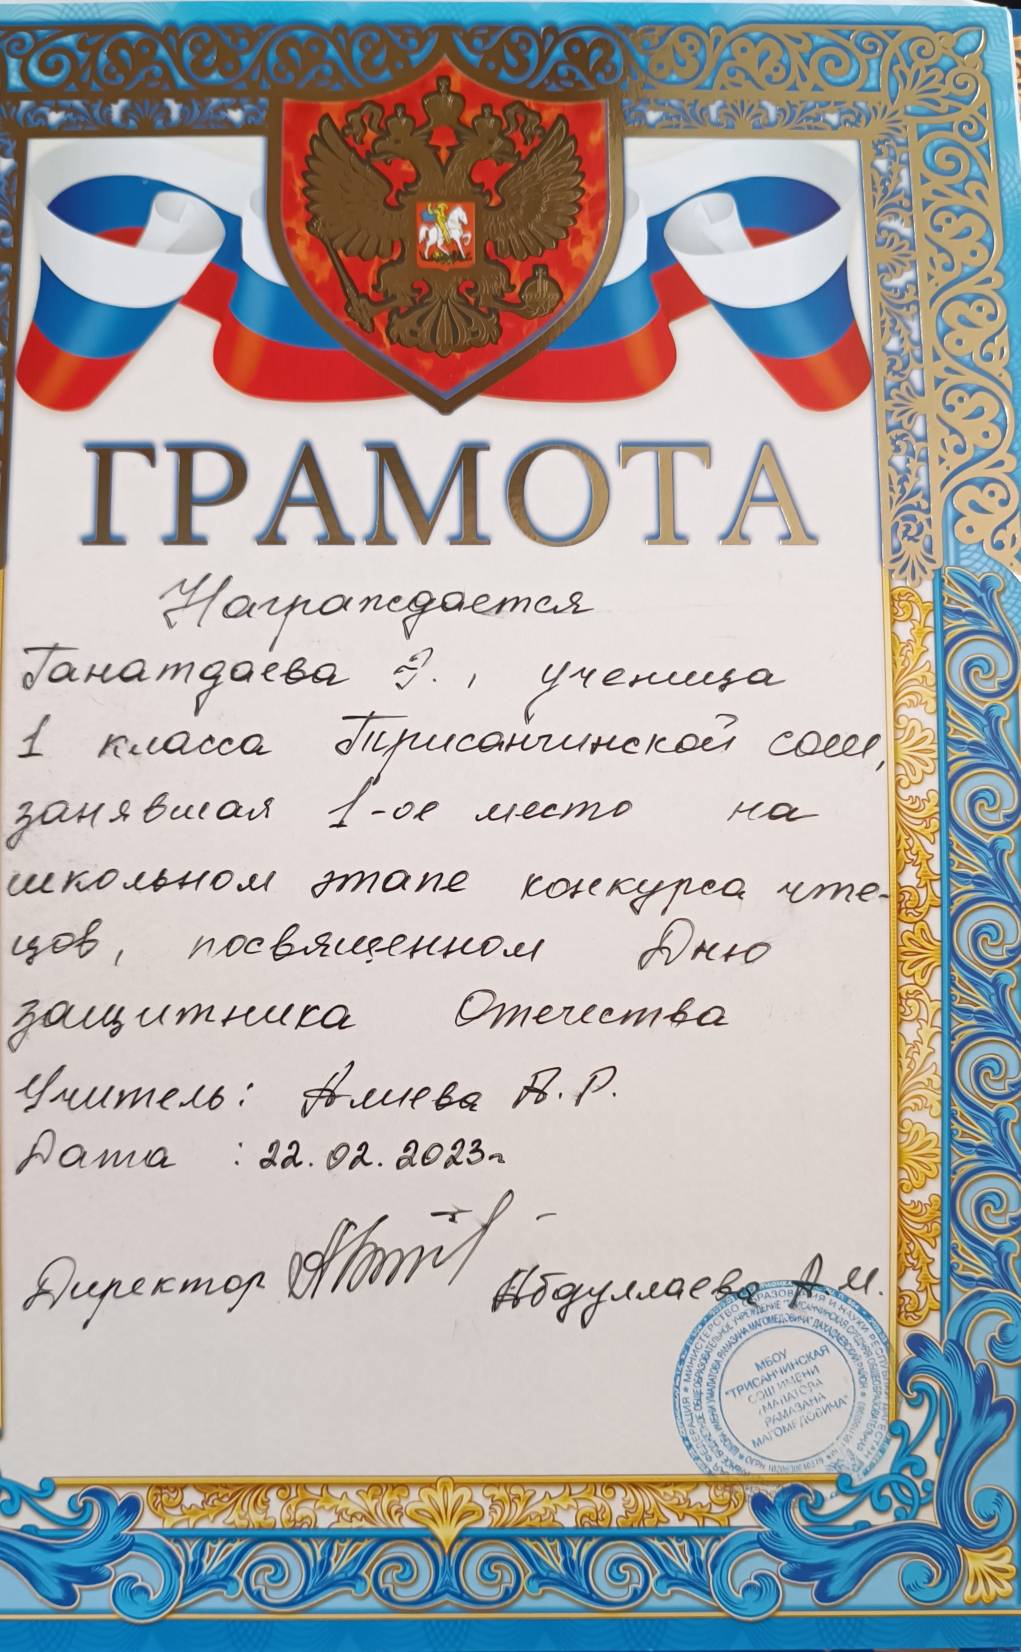 ГРАМОТА
Награждается
Ганатдаева Э., ученица
1 класса Трисанчинской сош,
занявшая 1-ое место на
школьном этапе конкурса чте-
цов, посвященном Дню
защитника Отечества
Учитель: Алиева А.Р.
Дата : 22.02.2023г
Директор Абдуллаева А.М.
МБОУ
"ТРИСАНЧИНСКАЯ
СОШ ИМЕНИ
УМАЛАТОВА
РАМАЗАНА
МАГОМЕДОВИЧА"